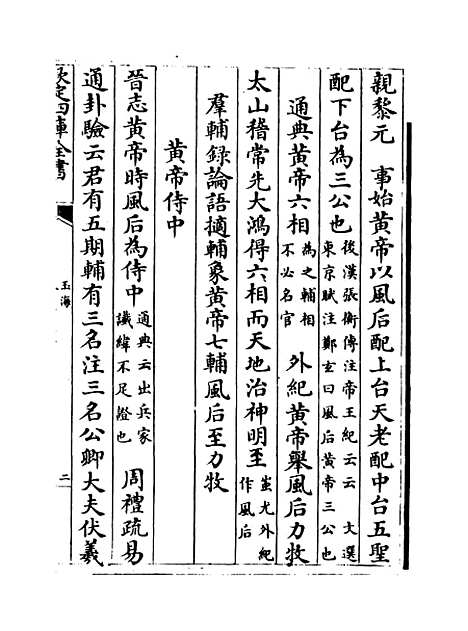 親黎元　事始黃帝以風后配上台天老配中台五聖
配下台為三公也後漢張衡傳注帝王紀云云　文選
東京賦注鄭玄曰風后黃帝三公也
通典黃帝六相為之輔相
不必名官　外紀黃帝舉風后力牧
太山稽常先大鴻得六相而天地治神明至蚩尤外紀
作風后
羣輔錄論語擿輔象黃帝七輔風后至力牧
黃帝侍中
晉志黃帝時風后為侍中通典云出兵家
讖緯不足證也　周禮疏易
通卦驗云君有五期輔有三名注三名公卿大夫伏羲
欽定四庫全書
玉海
二